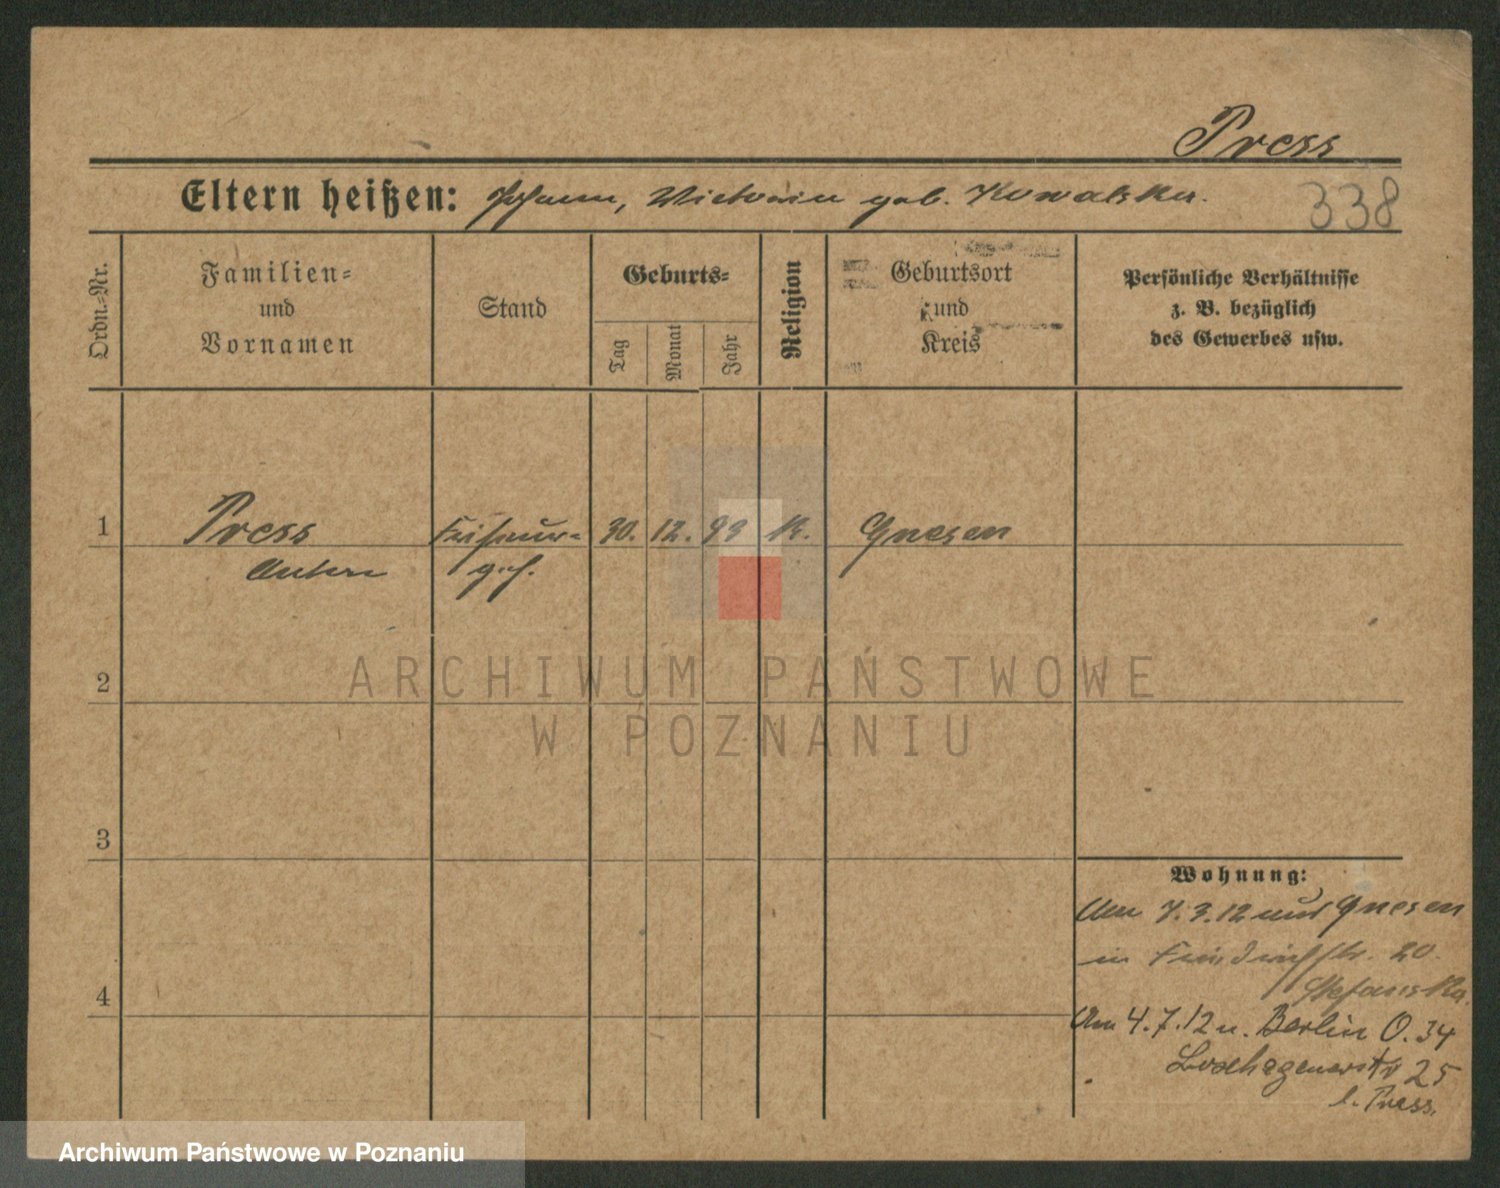 Press
Eltern heißen: Johann, Victoria geb. Kowalska.
338
Ordn.-Nr.
Familien- und Vornamen
Stand
Geburts-
Tag
Monat
Jahr
Religion
Geburtsort und Kreis
Persönliche Verhältnisse
z. B. bezüglich
des Gewerbes usw.
1
Press
Friseur-
30.
12.
93
K.
Gnesen
Anton
geh.
2
3
4
Wohnung:
Am 7.3.12 aus Gnesen
in Friedrichstr. 20.
Stefanska.
Am 4.7.12 n. Berlin O. 34
Boxhagenerstr 25
b. Press.
ARCHIWUM PAŃSTWOWE
W POZNANIU
Archiwum Państwowe w Poznaniu